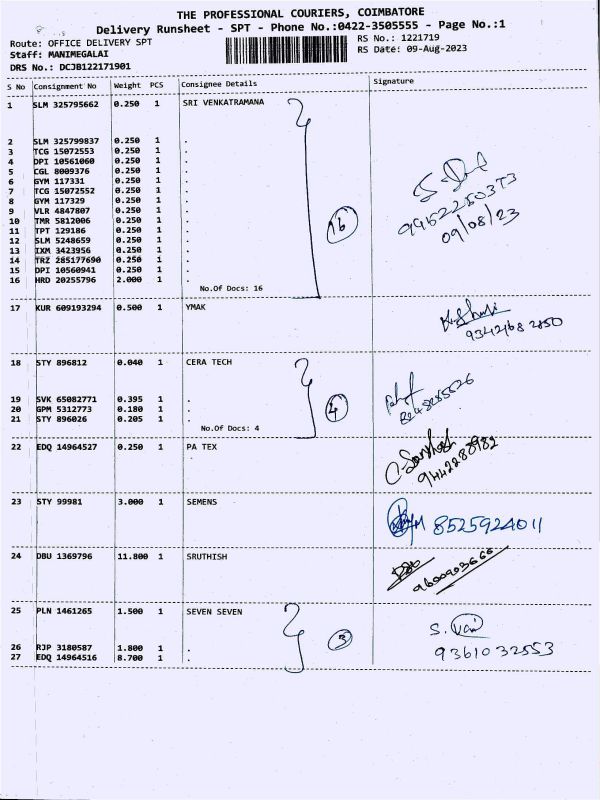 THE PROFESSIONAL COURIERS, COIMBATORE
Delivery Runsheet - SPT - Phone No.:0422-3505555 - Page No.:1
Route: OFFICE DELIVERY SPT
RS No.: 1221719
Staff: MANIMEGALAI
RS Date: 09-Aug-2023
DRS No.: DCJB122171901
S No Consignment No Weight PCS Consignee Details Signature
1 SLM 325795662 0.250 1 SRI VENKATRAMANA
2 SLM 325799837 0.250 1 .
3 TCG 15072553 0.250 1 .
4 DPI 10561060 0.250 1 .
5 CGL 8009376 0.250 1 .
6 GYM 117331 0.250 1 .
7 TCG 15072552 0.250 1 .
8 GYM 117329 0.250 1 .
9 VLR 4847807 0.250 1 .
10 TMR 5812006 0.250 1 .
11 TPT 129186 0.250 1 .
12 SLM 5248659 0.250 1 .
13 IXM 3423956 0.250 1 .
14 TRZ 285177690 0.250 1 .
15 DPI 10560941 0.250 1 .
16 HRD 20255796 2.000 1 .
No.Of Docs: 16
16
9952250373
09/08/23
17 KUR 609193294 0.500 1 YMAK
9342168 2850
18 STY 896812 0.040 1 CERA TECH
19 SVK 65082771 0.395 1 .
20 GPM 5312773 0.180 1 .
21 STY 896026 0.205 1 .
No.Of Docs: 4
4
22 EDQ 14964527 0.250 1 PA TEX
C. Santhosh
9442288982
23 STY 99981 3.000 1 SEMENS
8525924011
24 DBU 1369796 11.800 1 SRUTHISH
9600903666
25 PLN 1461265 1.500 1 SEVEN SEVEN
26 RJP 3180587 1.800 1 .
27 EDQ 14964516 8.700 1 .
3
S. Vani
9361032553